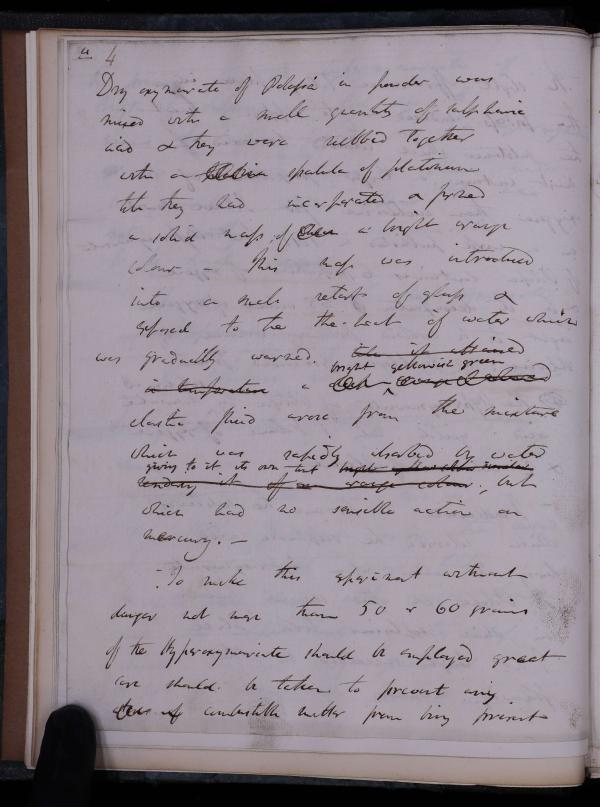 4
Dry oxymuriate of Potassa in powder was
mixed with a small quantity of sulphuric
acid & they were rubbed together
with a spatula of platinum
till they had incorporated & formed
a solid mass of a bright orange
colour – This mass was introduced
into a small retort of glass &
exposed to the the heat of water which
was gradually warmed. till it attained
bright yellowish green
its temperature a orange coloured
elastic fluid arose from the mixture
which was rapidly absorbed by water
giving to it its own tint
rendering it of an orange colour; but
which had no sensible action on
mercury. –
To make this experiment without
danger not more than 50 or 60 grains
of the Hyperoxymuriate should be employed great
care should be taken to prevent any
combustible matter from being present